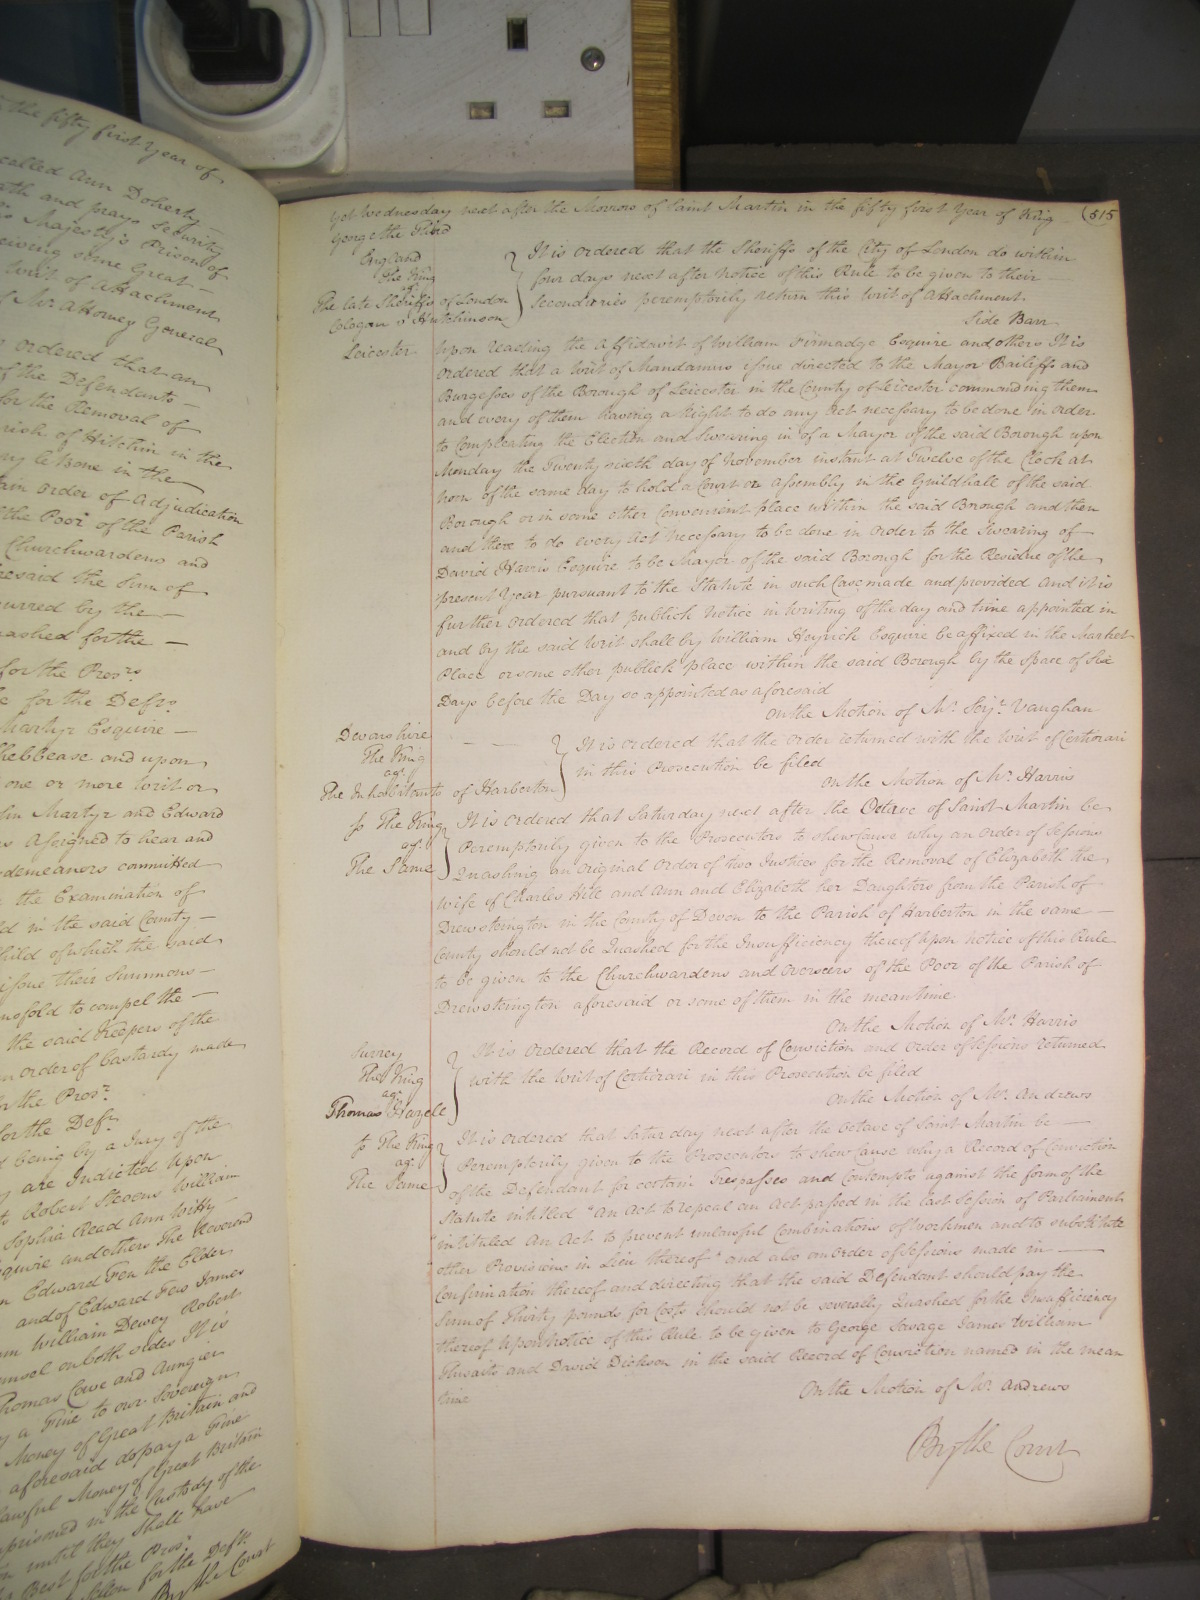 the fifty first Year of
called Ann Doherty
and prays Security
Majesty's Prison of
receiving some Great
Writ of Attachment
of Mr. Attorney General
ordered that an
of the Defendants
for the Removal of
Parish of Hitchin in the
le bone in the
Order of Adjudication
the Poor of the Parish
Churchwardens and
aforesaid the Sum of
incurred by the
Quashed for the
for the Prosrs
for the Defts
Martyr Esquire
and upon
one or more Writ or
Martyr and Edward
Assigned to hear and
misdemeanors committed
the Examination of
in the said County
Child of which the said
issue their Summons
to compel the
the said Keepers of the
Order of bastardy made
for the Prosr.
for the Deft.
being by a Jury of the
are Indicted Upon
Robert Stevens William
Sophia Read Ann Witty
Esquire and others The Reverend
Edward Few the Elder
and of Edward Few James
William Dewey Robert
Counsel on both sides It is
Thomas Cowe and Aungier
a Fine to our Sovereign
Money of Great Britain and
aforesaid do pay a Fine
lawful Money of Great Britain
imprisoned in the Custody of the
until they shall have
Best for the Prosr.
for the Deft.
By the Court
Yet Wednesday next after the Morrow of Saint Martin in the fifty first Year of King (515
George the Third
England
The King
agt.
The late Sheriffs of London
Cologan v Hutchinson
It is ordered that the Sheriffs of the City of London do within
four days next after notice of this Rule to be given to their
Secondaries peremptorily return this Writ of Attachment
Side Barr
Leicester
Upon reading the Affidavit of William Firmadge Esquire and others It is
ordered that a Writ of Mandamus issue directed to the Mayor Bailiffs and
Burgesses of the Borough of Leicester in the County of Leicester commanding them
and every of them having a Right to do any Act necessary to be done in order
to Compleating the Election and Swearing in of a Mayor of the said Borough upon
Monday the Twenty sixth day of November instant at Twelve of the Clock at
noon of the same day to hold a Court or assembly in the Guildhall of the said
Borough or in some other Convenient place within the said Borough and then
and there to do every Act necessary to be done in order to the Swearing of
David Harris Esquire to be Mayor of the said Borough for the Residue of the
present Year pursuant to the Statute in such Case made and provided and it is
further ordered that publick notice in writing of the day and time appointed in
and by the said Writ shall by William Heyrick Esquire be affixed in the Market
Place or some other publick place within the said Borough by the space of Six
Days before the Day so appointed as aforesaid
On the Motion of Mr. Serjt. Vaughan
Devonshire
The King
agt.
The Inhabitants of Harberton
It is ordered that the order returned with the Writ of Certiorari
in this Prosecution be filed
On the Motion of Mr. Harris
So The King
agt.
The Same
It is ordered that Saturday next after the Octave of Saint Martin be
Peremptorily given to the Prosecutors to shew Cause why an order of Sessions
Quashing an original Order of two Justices for the Removal of Elizabeth the
wife of Charles Hill and Ann and Elizabeth her Daughters from the Parish of
Drewsteington in the County of Devon to the Parish of Harberton in the same
County should not be Quashed for the Insufficiency thereof Upon notice of this Rule
to be given to the Churchwardens and Overseers of the Poor of the Parish of
Drewsteington aforesaid or some of them in the meantime
On the Motion of Mr. Harris
Surrey
The King
agt.
Thomas Hazele
It is ordered that the Record of Conviction and order of Sessions returned
with the Writ of Certiorari in this Prosecution be filed
On the Motion of Mr. Andrews
So The King
agt.
The Same
It is ordered that Saturday next after the Octave of Saint Martin be
Peremptorily given to the Prosecutors to shew Cause why a Record of Conviction
of the Defendant for certain Trespasses and Contempts against the form of the
Statute intitled "An Act to repeal an Act passed in the last Session of Parliament
"intituled An Act to prevent unlawful Combinations of workmen and to substitute
"other Provisions in Lieu thereof" and also an order of Sessions made in
Confirmation thereof and directing that the said Defendant should pay the
Sum of Thirty pounds for Costs should not be severally Quashed for the Insufficiency
thereof Upon notice of this Rule to be given to George Savage James William
Thwaits and David Dickson in the said Record of Conviction named in the mean
time
On the Motion of Mr. Andrews
By the Court